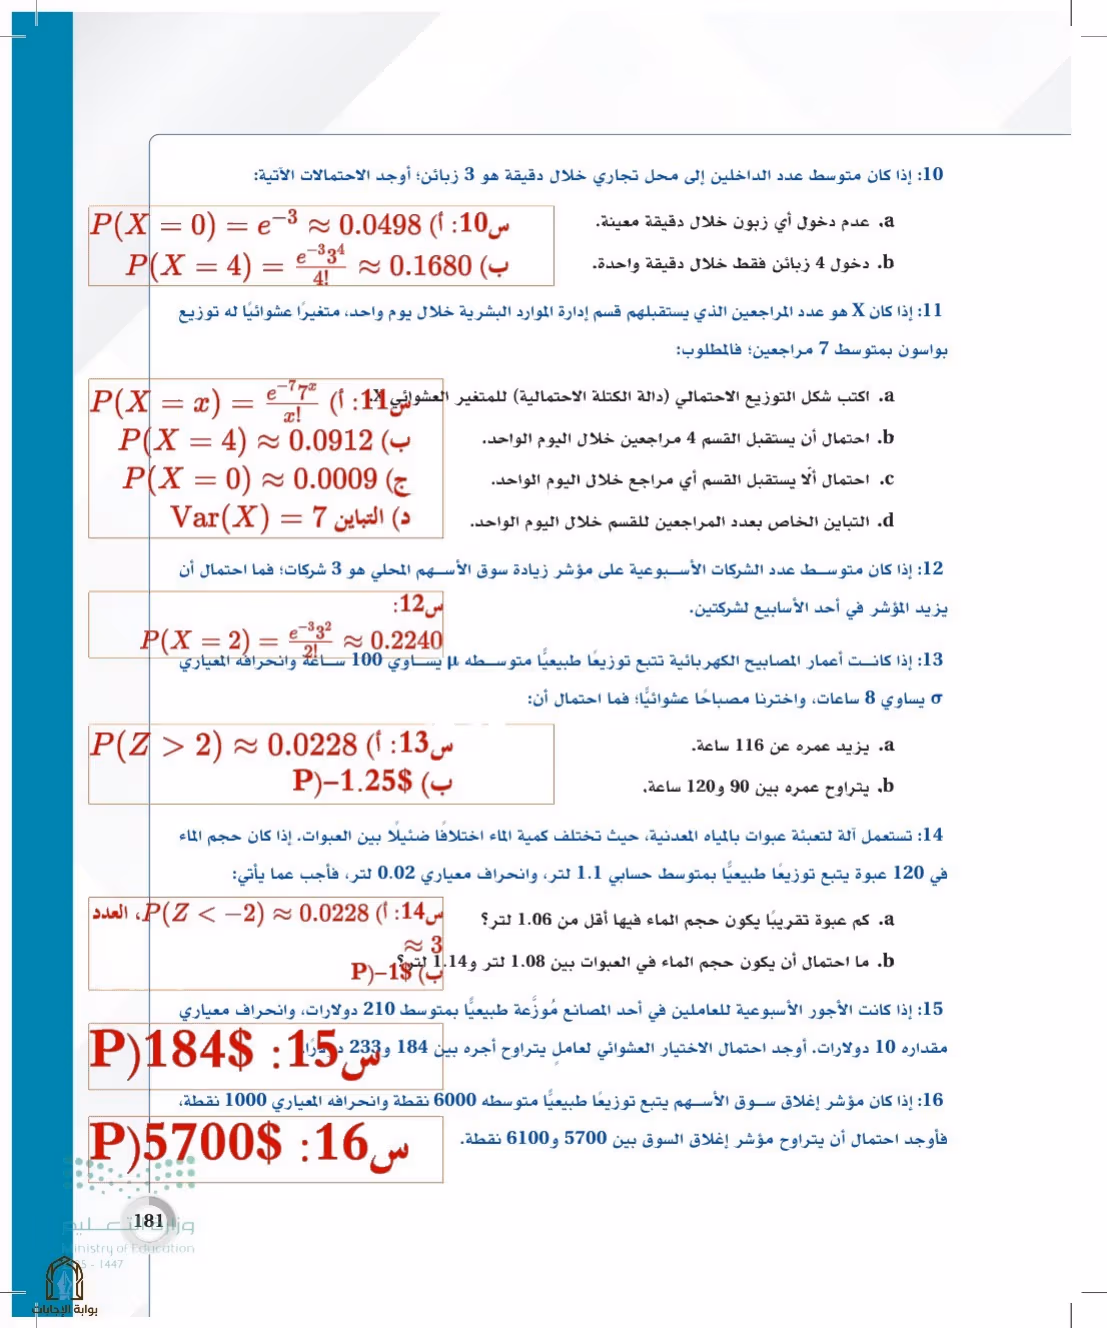 10: إذا كان متوسط عدد الداخلين إلى محل تجاري خلال دقيقة هو 3 زبائن؛ أوجد الاحتمالات الآتية:
a. عدم دخول أي زبون خلال دقيقة معينة.
س10: أ) P(X = 0) = e^{-3} ≈ 0.0498
b. دخول 4 زبائن فقط خلال دقيقة واحدة.
ب) P(X = 4) = \frac{e^{-3}3^4}{4!} ≈ 0.1680
11: إذا كان X هو عدد المراجعين الذي يستقبلهم قسم إدارة الموارد البشرية خلال يوم واحد، متغيرًا عشوائيًا له توزيع
بواسون بمتوسط 7 مراجعين؛ فالمطلوب:
a. اكتب شكل التوزيع الاحتمالي (دالة الكتلة الاحتمالية) للمتغير العشوائي X.
س11: أ) P(X = x) = \frac{e^{-7}7^x}{x!}
b. احتمال أن يستقبل القسم 4 مراجعين خلال اليوم الواحد.
ب) P(X = 4) ≈ 0.0912
c. احتمال ألّا يستقبل القسم أي مراجع خلال اليوم الواحد.
ج) P(X = 0) ≈ 0.0009
d. التباين الخاص بعدد المراجعين للقسم خلال اليوم الواحد.
د) التباين Var(X) = 7
12: إذا كان متوسط عدد الشركات الأسبوعية على مؤشر زيادة سوق الأسهم المحلي هو 3 شركات؛ فما احتمال أن
يزيد المؤشر في أحد الأسابيع لشركتين.
س12:
P(X = 2) = \frac{e^{-3}3^2}{2!} ≈ 0.2240
13: إذا كانت أعمار المصابيح الكهربائية تتبع توزيعًا طبيعيًّا متوسطه μ يساوي 100 ساعة وانحرافه المعياري
σ يساوي 8 ساعات، واخترنا مصباحًا عشوائيًّا؛ فما احتمال أن:
a. يزيد عمره عن 116 ساعة.
س13: أ) P(Z > 2) ≈ 0.0228
b. يتراوح عمره بين 90 و120 ساعة.
ب) $P(−1.25
14: تستعمل آلة لتعبئة عبوات بالمياه المعدنية، حيث تختلف كمية الماء اختلافًا ضئيلًا بين العبوات. إذا كان حجم الماء
في 120 عبوة يتبع توزيعًا طبيعيًّا بمتوسط حسابي 1.1 لتر، وانحراف معياري 0.02 لتر، فأجب عما يأتي:
a. كم عبوة تقريبًا يكون حجم الماء فيها أقل من 1.06 لتر؟
س14: أ) P(Z < −2) ≈ 0.0228، العدد
≈ 3
b. ما احتمال أن يكون حجم الماء في العبوات بين 1.08 لتر و1.14 لتر؟
ب) $P(−1
15: إذا كانت الأجور الأسبوعية للعاملين في أحد المصانع مُوزَّعة طبيعيًّا بمتوسط 210 دولارات، وانحراف معياري
مقداره 10 دولارات. أوجد احتمال الاختيار العشوائي لعاملٍ يتراوح أجره بين 184 و233 دولارًا.
س15: $P(184
16: إذا كان مؤشر إغلاق سوق الأسهم يتبع توزيعًا طبيعيًّا متوسطه 6000 نقطة وانحرافه المعياري 1000 نقطة،
فأوجد احتمال أن يتراوح مؤشر إغلاق السوق بين 5700 و6100 نقطة.
س16: $P(5700
181
وزارة التعليم
Ministry of Education
5 - 1447
بوابة الإجابات